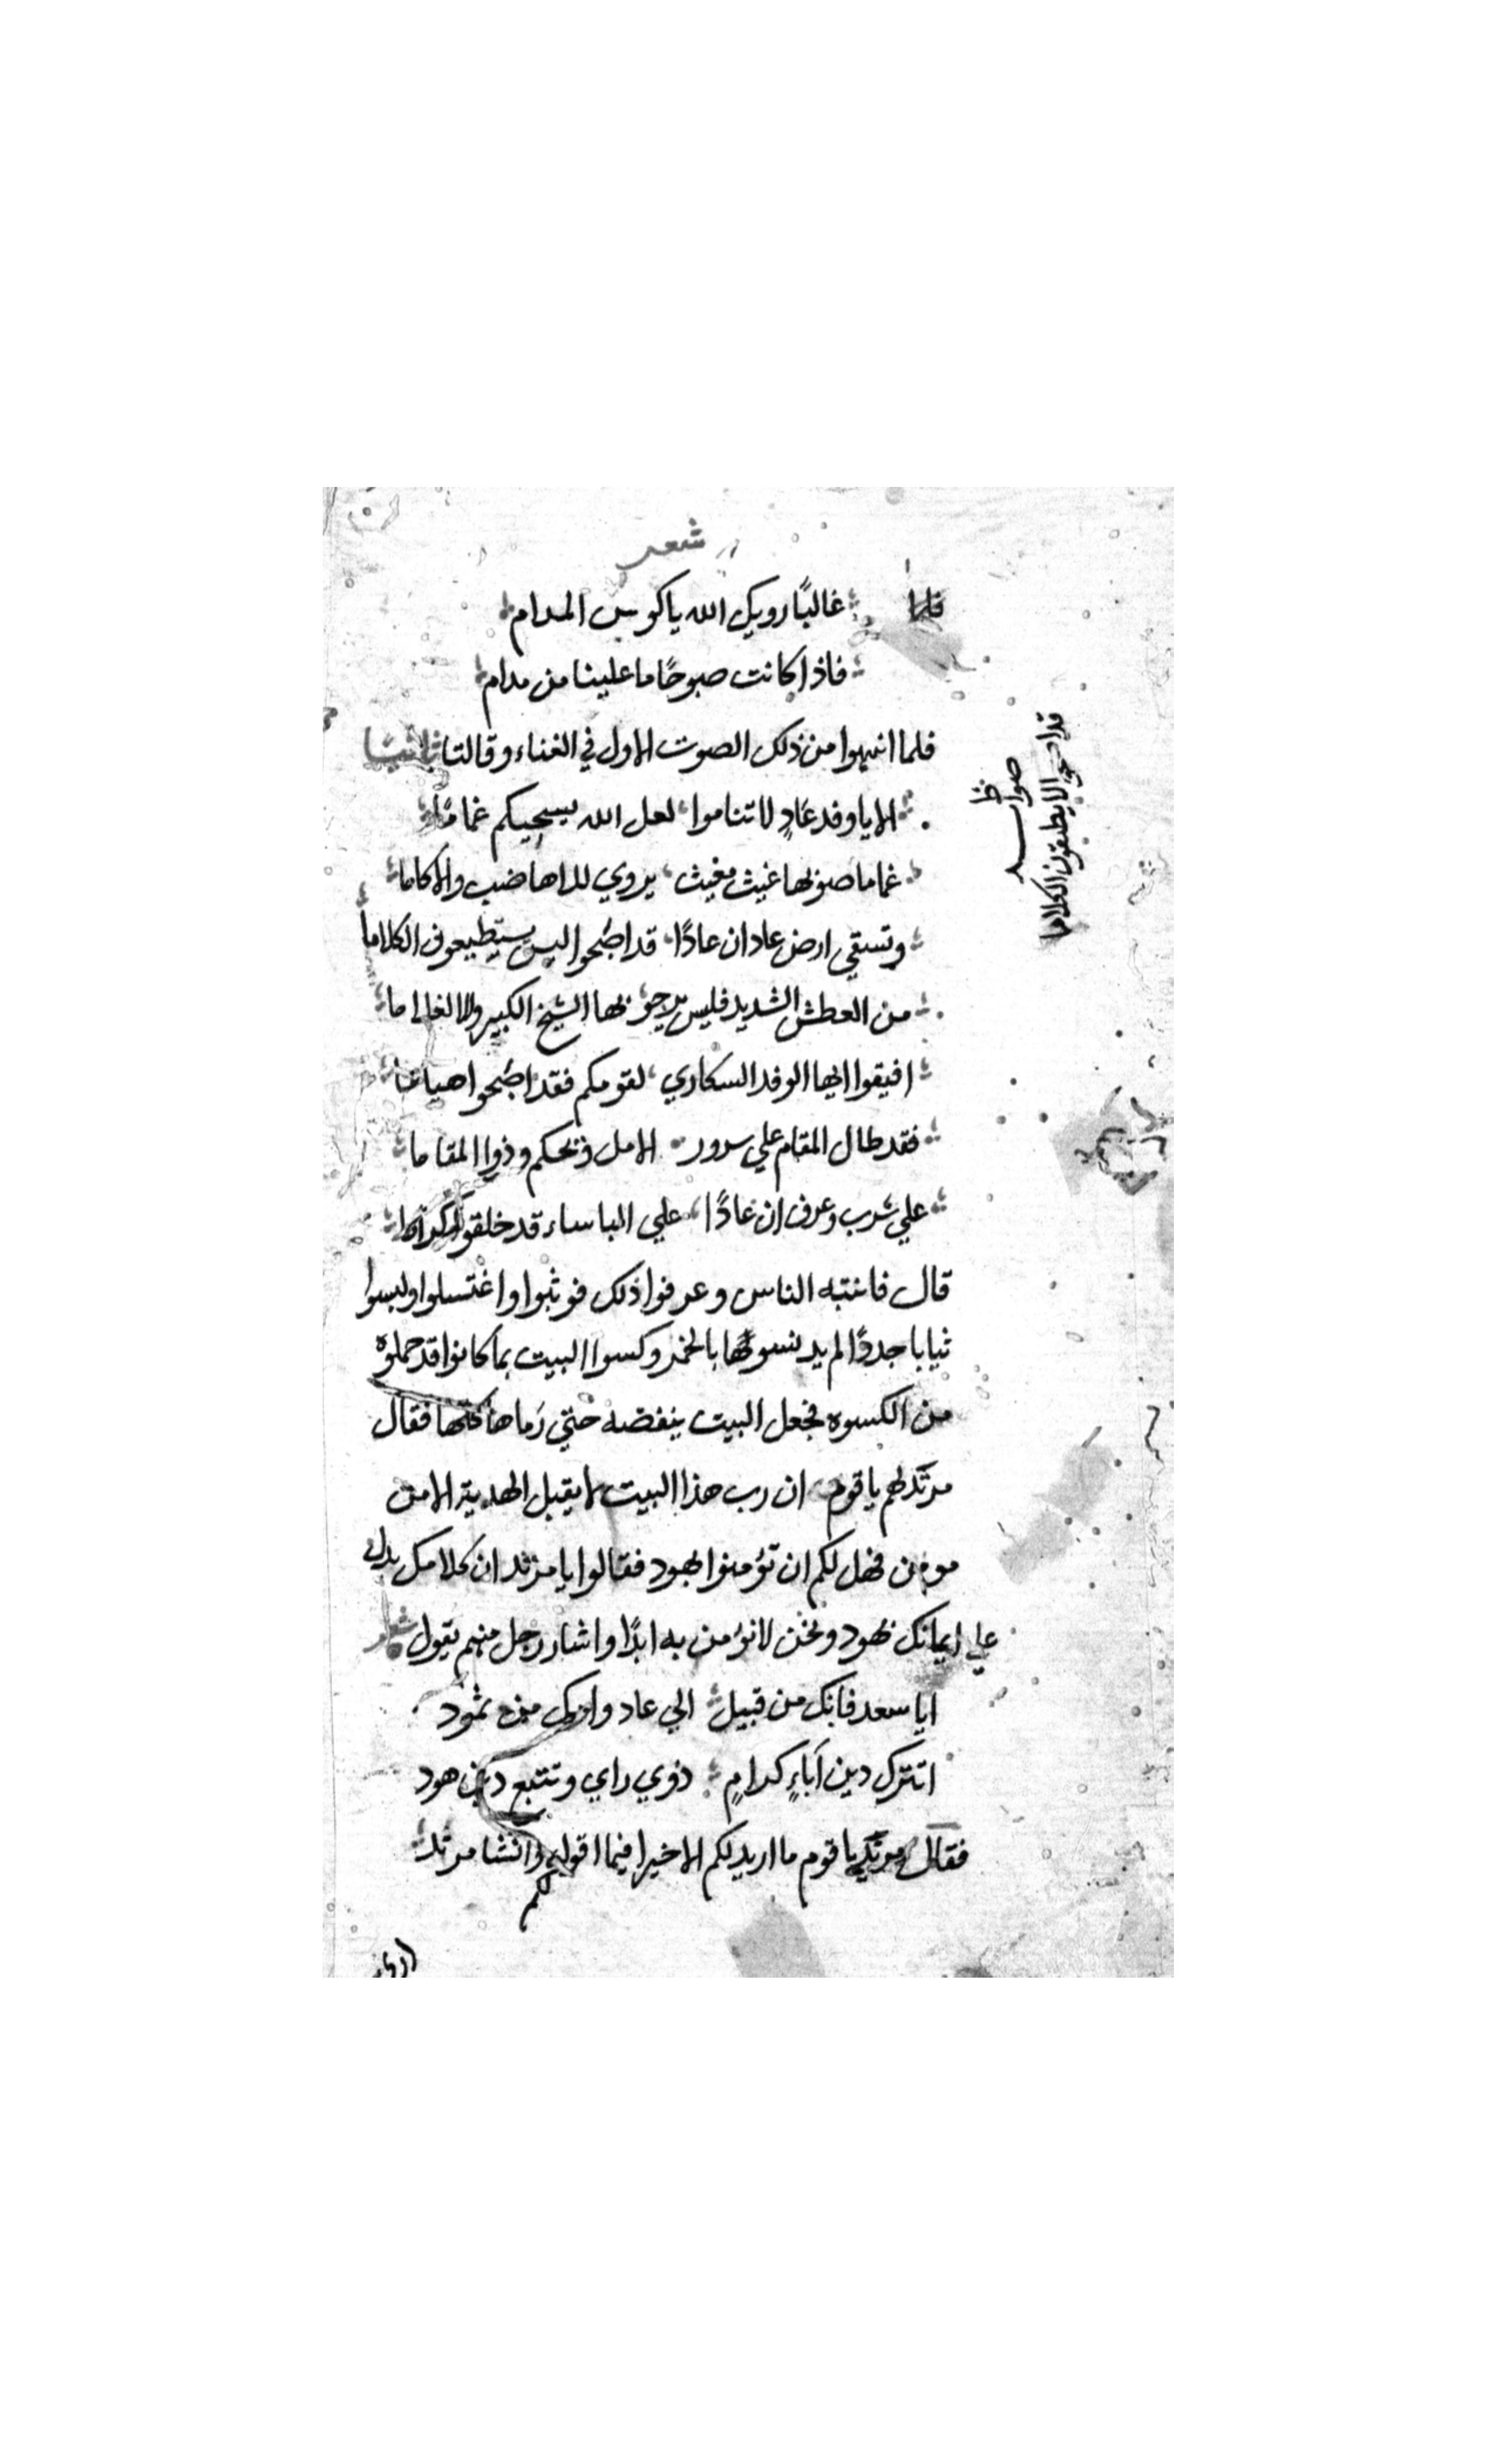 شعر
غالبًا رويك الله ياكوس المدام
فاذا كانت صبوحًا ما علينا من مدام
فلما انتهوا من ذلك الصوت الاول في الغناء وقالتا ثانيا
الا ياوفد عادٍ لا تناموا لعل الله يسحيكم غمامًا
غماما صوبها غيث مغيث يروي للاهاضب والاكاما
وتسقي ارض عاد ان عادًا قد اضحوا ليس يستطيعون الكلاما
من العطش الشديد فليس يرجو بها الشيخ الكبير ولا الغلاما
افيقوا ايها الوفد السكاري لقومكم فقد اضحوا هياما
فقد طال المقام علي سرور الامل ويحكم وذوا المقاما
علي شرب وعرف ان عادًا علي الباساء قد خلقوا كراما
قال فانتبه الناس وعرفوا ذلك فوثبوا واغتسلوا ولبسوا
ثيابا جددًا لم يدنسوها بالخمر وكسوا البيت بما كانوا قد حملوه
من الكسوه فجعل البيت ينفضه حتي رماها كلها فقال
مرثد لهم ياقوم ان رب هذا البيت لا يقبل الهدية الا من
مومن فهل لكم ان تؤمنوا بهود فقالوا يا مرثد ان كلامك يدل
علي ايمانك بهود ونحن لا نؤمن به ابدًا واشار رجل منهم يقول شعر
ايا سعد فانك من قبيل الي عاد وامك من ثمود
اتترك دين آباءٍ كرامٍ ذوي راي وتتبع دين هود
فقال مرثد ياقوم ما اريد لكم الا خيرا فيما اقوله وانشا مرثد
لكم
قد اضحوا لا يطيقون الكلاما
صوابه